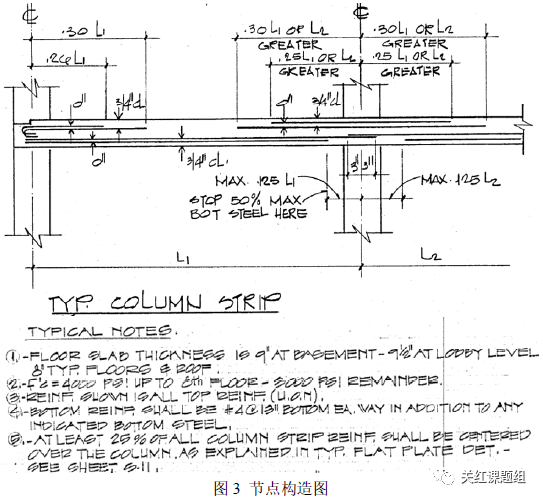 ℄ ℄
.30 L1 .30 L1 OR L2 .30 L1 OR L2
GREATER GREATER
.26 L1 .25 L1 OR L2 .25 L1 OR L2
GREATER GREATER
d" 3/4" cl. d" 3/4" cl.
d" 3/4" CL. 3" 3"
MAX. .125 L1 MAX. .125 L2
STOP 50% MAX.
BOT STEEL HERE
L1 L2
TYP. COLUMN STRIP
TYPICAL NOTES.
1.-FLOOR SLAB THICKNESS IS 9" AT BASEMENT - 9½" AT LOBBY LEVEL
8" TYP. FLOORS & ROOF.
2.-f'c = 4000 PSI UP TO 8th FLOOR - 3000 PSI REMAINDER.
3.-REINF. SHOWN IS ALL TOP REINF. (U.O.N).
4.-BOTTOM REINF. SHALL BE #4@13" BOTTOM EA. WAY IN ADDITION TO ANY
INDICATED BOTTOM STEEL.
5.-AT LEAST 25% OF ALL COLUMN STRIP REINF. SHALL BE CENTERED
OVER THE COLUMN. AS EXPLAINED IN TYP. FLAT PLATE DET.-
SEE SHEET S-11.
关红课题组
图 3 节点构造图